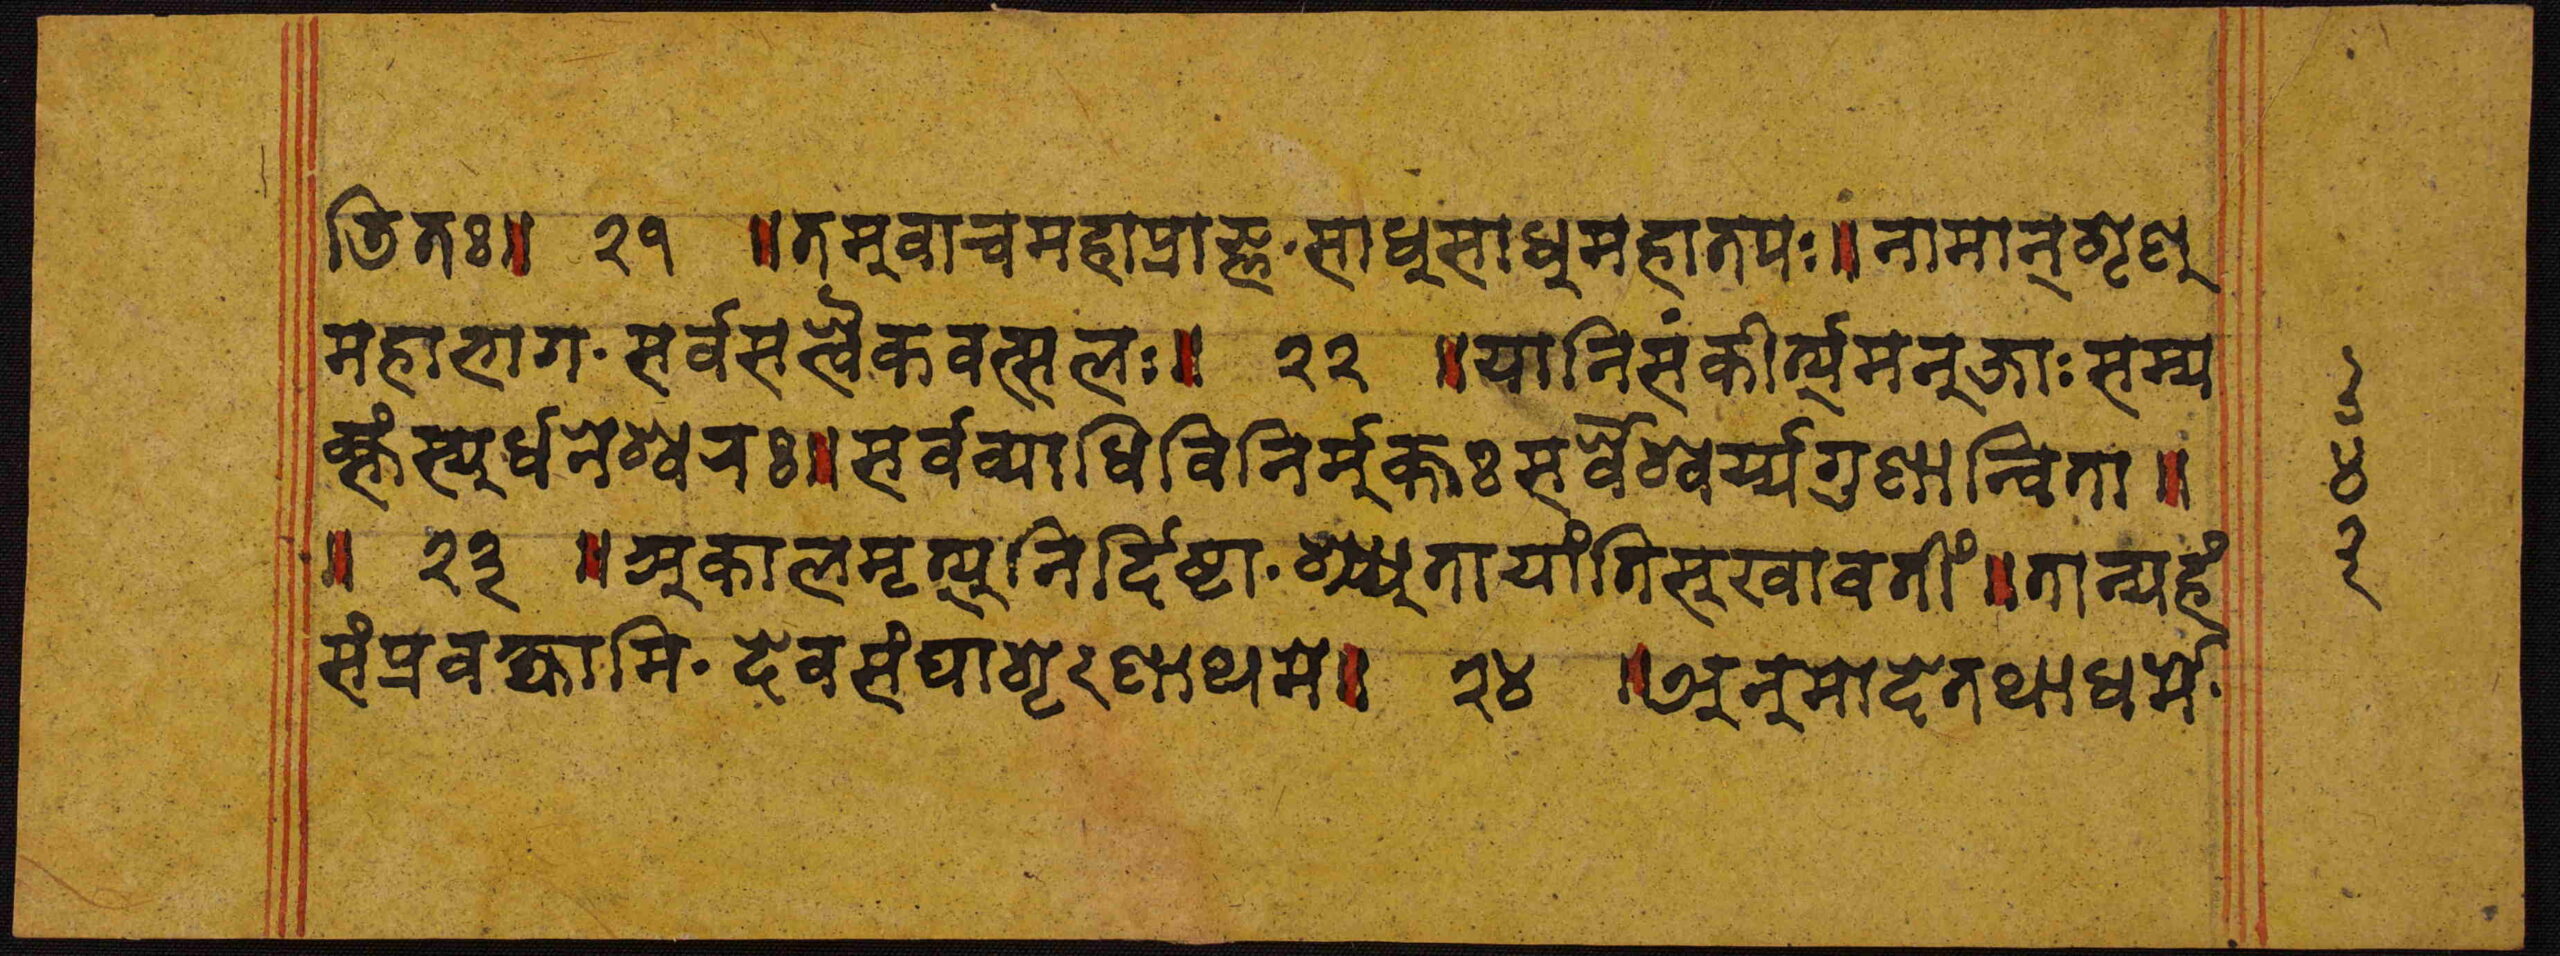 तितः॥ २१ ॥तमुवाचमहाप्राज्ञ·साधुसाधुमहातपः॥नामानुशृणु
महाभाग·सर्वसत्वैकवत्सलः॥ २२ ॥यानिसंकीर्त्यमनुजाःसम्य
क्तंस्युर्धनेश्वरः॥सर्वव्याधिविनिर्मुक्तःसर्वैश्वर्य्यगुणान्विता॥
॥ २३ ॥अकालमृत्युनिर्दिष्टा·श्च्युतायांतिसुखावतीं॥तान्यहं
संप्रवक्ष्यामि·देवसंघाशृणाथमे॥ २४ ॥अनुमोदेतथाधर्मे·
४२